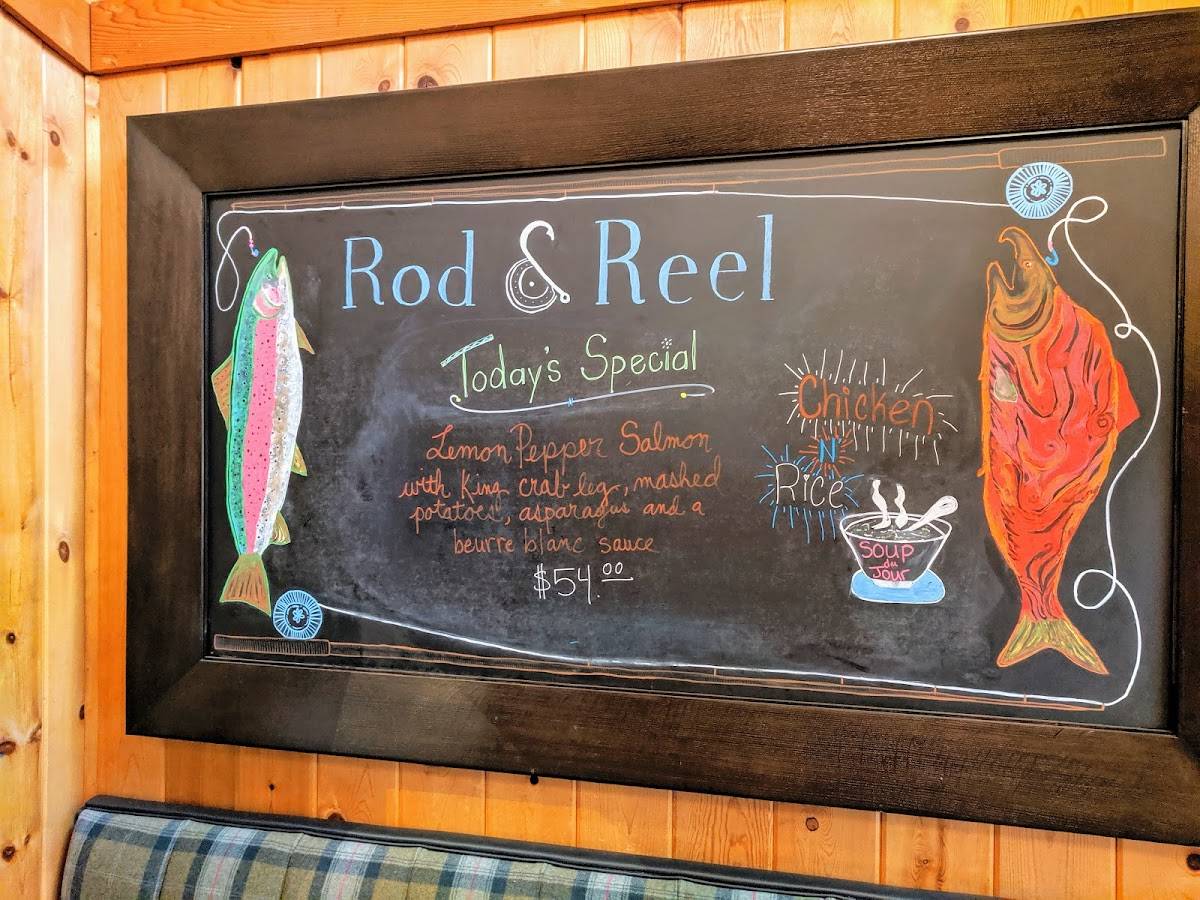 Rod & Reel
Today's Special
Lemon Pepper Salmon
with King crab leg, mashed
potatoes, asparagus and a
beurre blanc sauce
$54.00
Chicken
N
Rice
SOUP
du
Jour